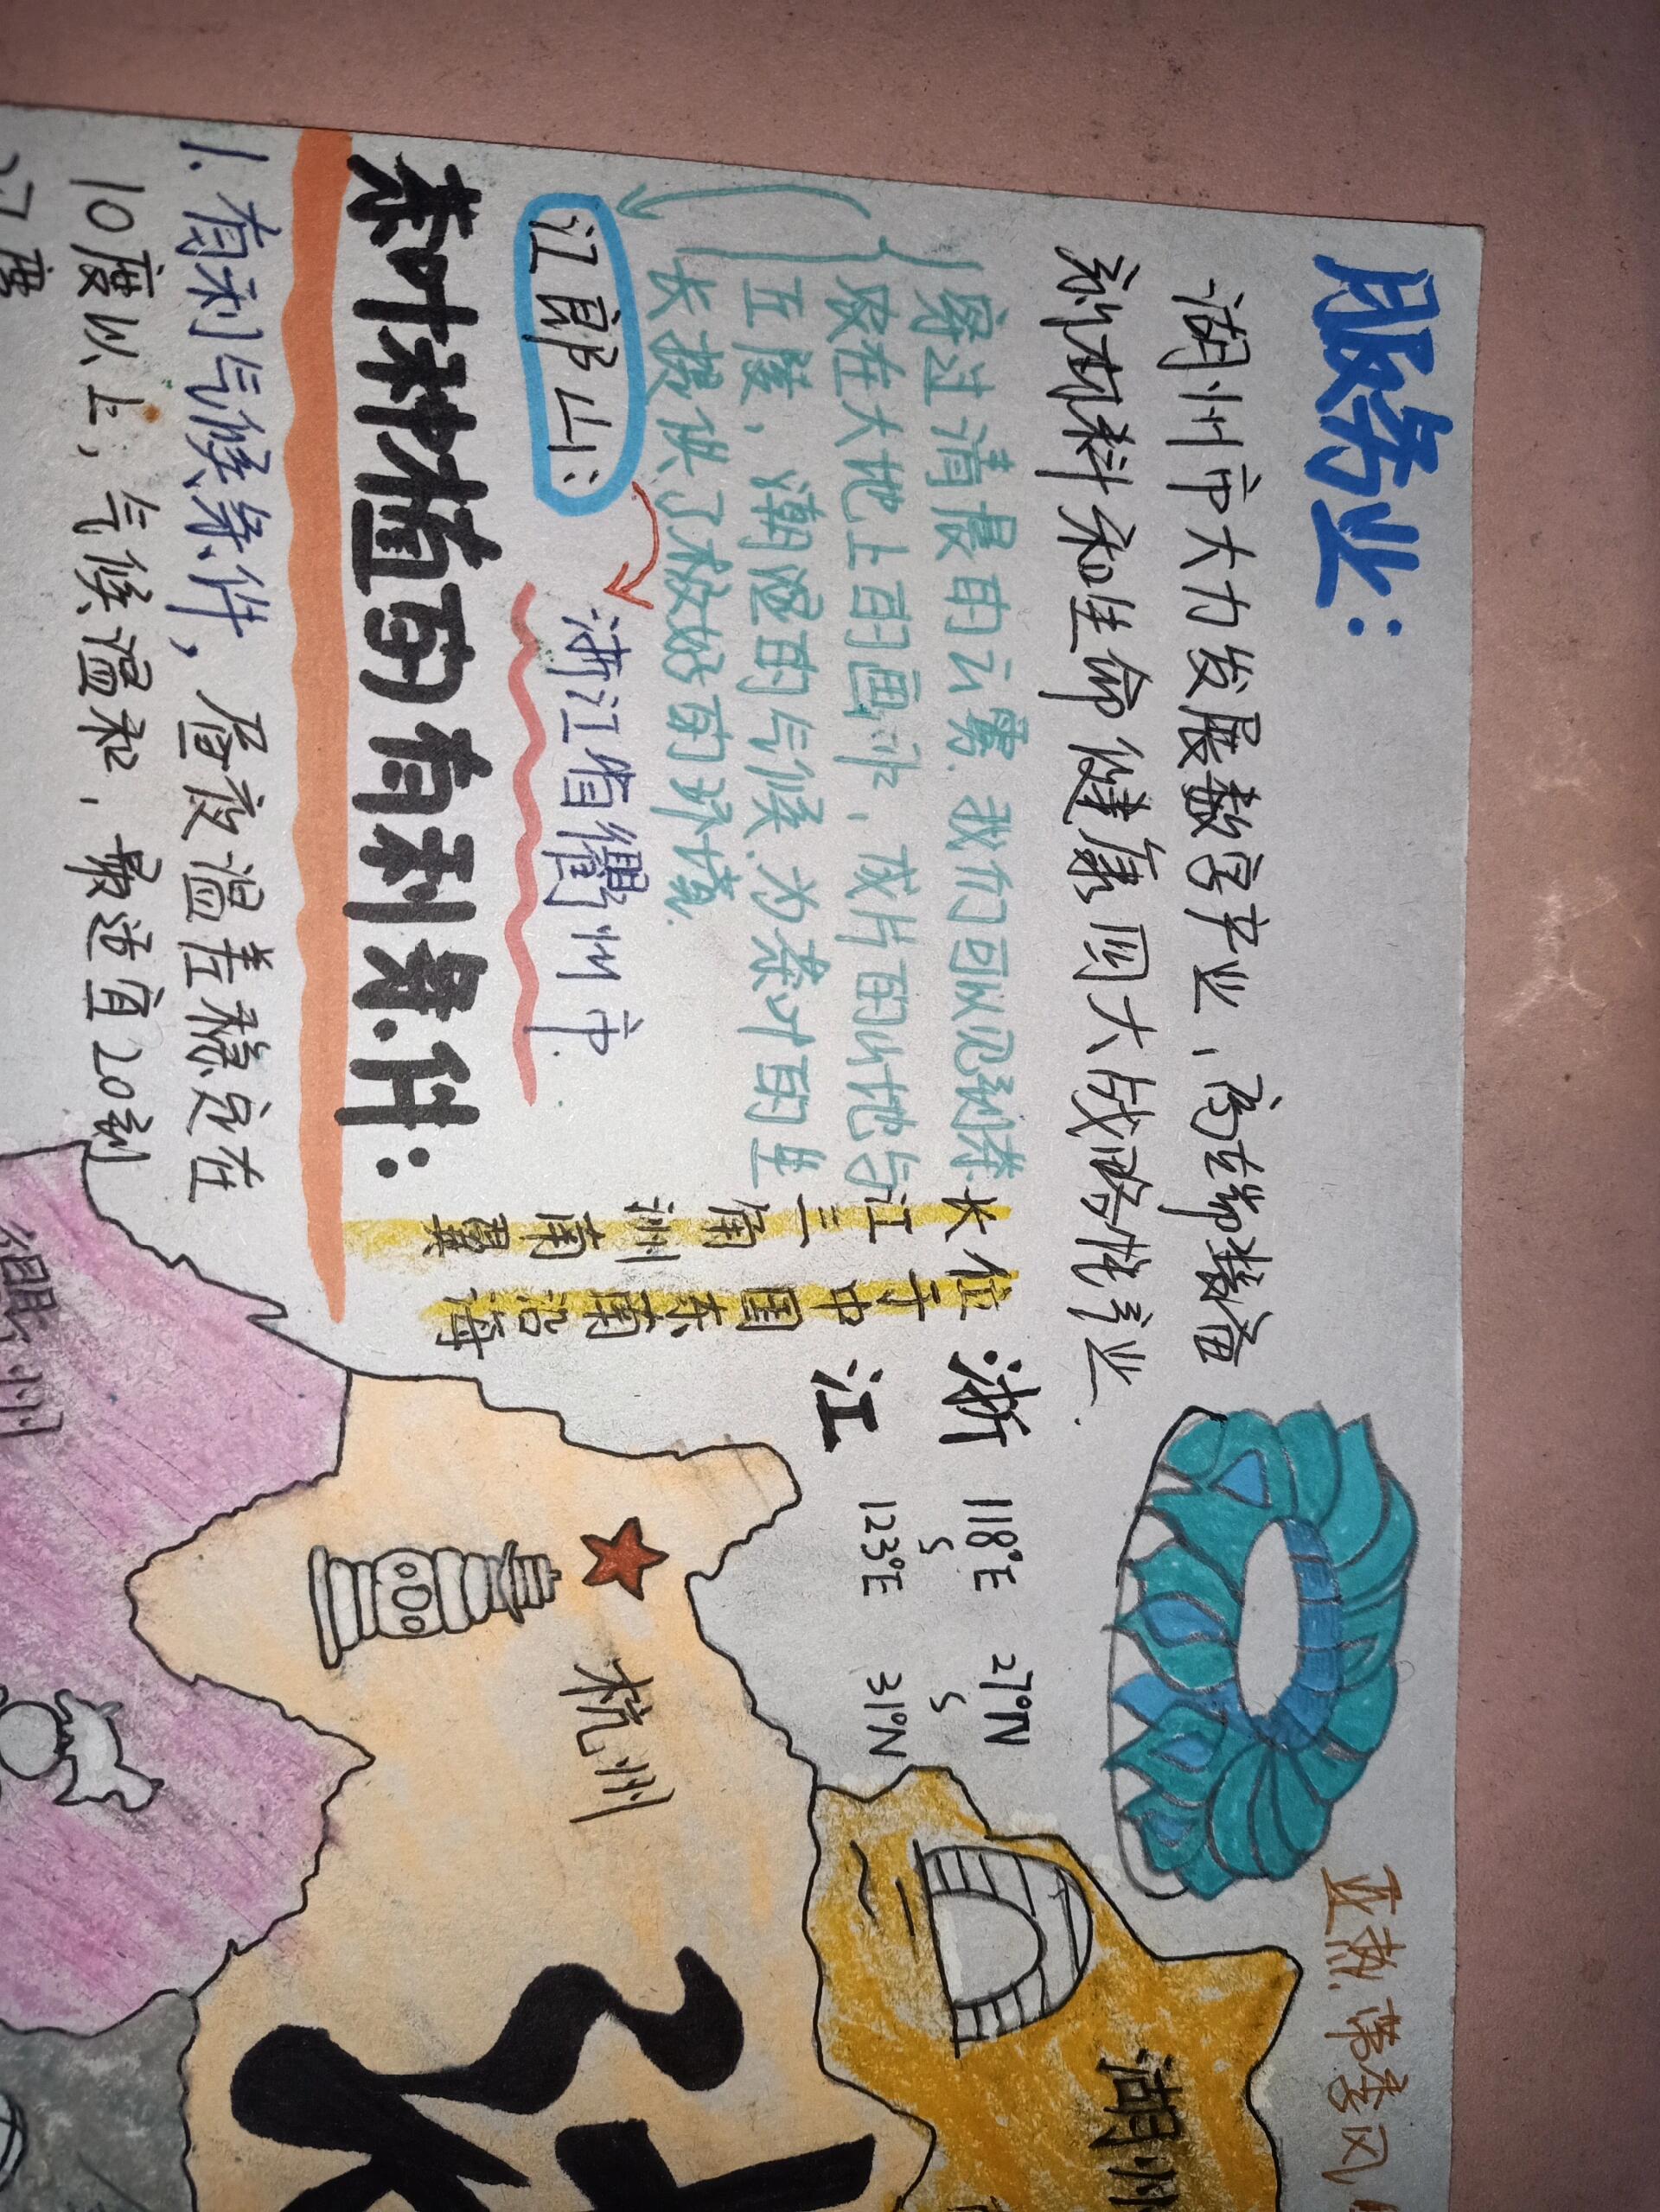 服务业:
湖州市大力发展数字产业、高端装备
新材料和生命健康四大战略性产业.
穿过清晨的云雾.我们可以见到茶
农在大地上的画作,成片的山地与
丘陵,潮湿的气候.为茶叶的生
长提供了极好的环境.
江郎山:
浙江省衢州市.
茶叶种植的有利条件:
1.有利气候条件,昼夜温差稳定在
10度以上,气候温和,最适宜20到
长江三角洲南翼
位于中国东南沿海
浙江
118°E
123°E
27°N
31°N
亚热带季风
杭州
湖州